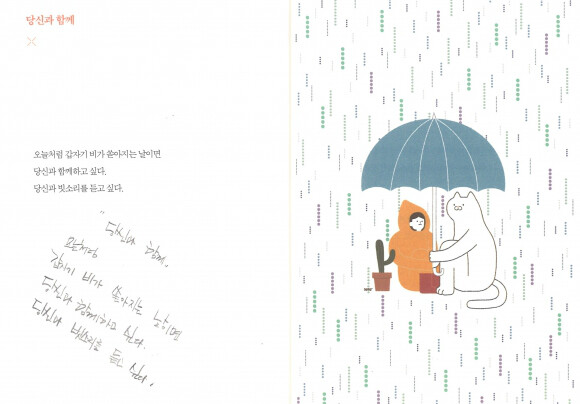 당신과 함께
오늘처럼 갑자기 비가 쏟아지는 날이면
당신과 함께하고 싶다.
당신과 빗소리를 듣고 싶다.
"당신과 함께.
오늘처럼
갑자기 비가 쏟아지는 날이면
당신과 함께하고 싶다.
당신과 빗소리를 듣고 싶다.